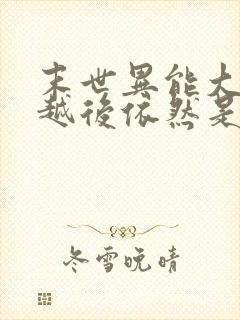 末世異能大
越後依然是
冬雪晚晴